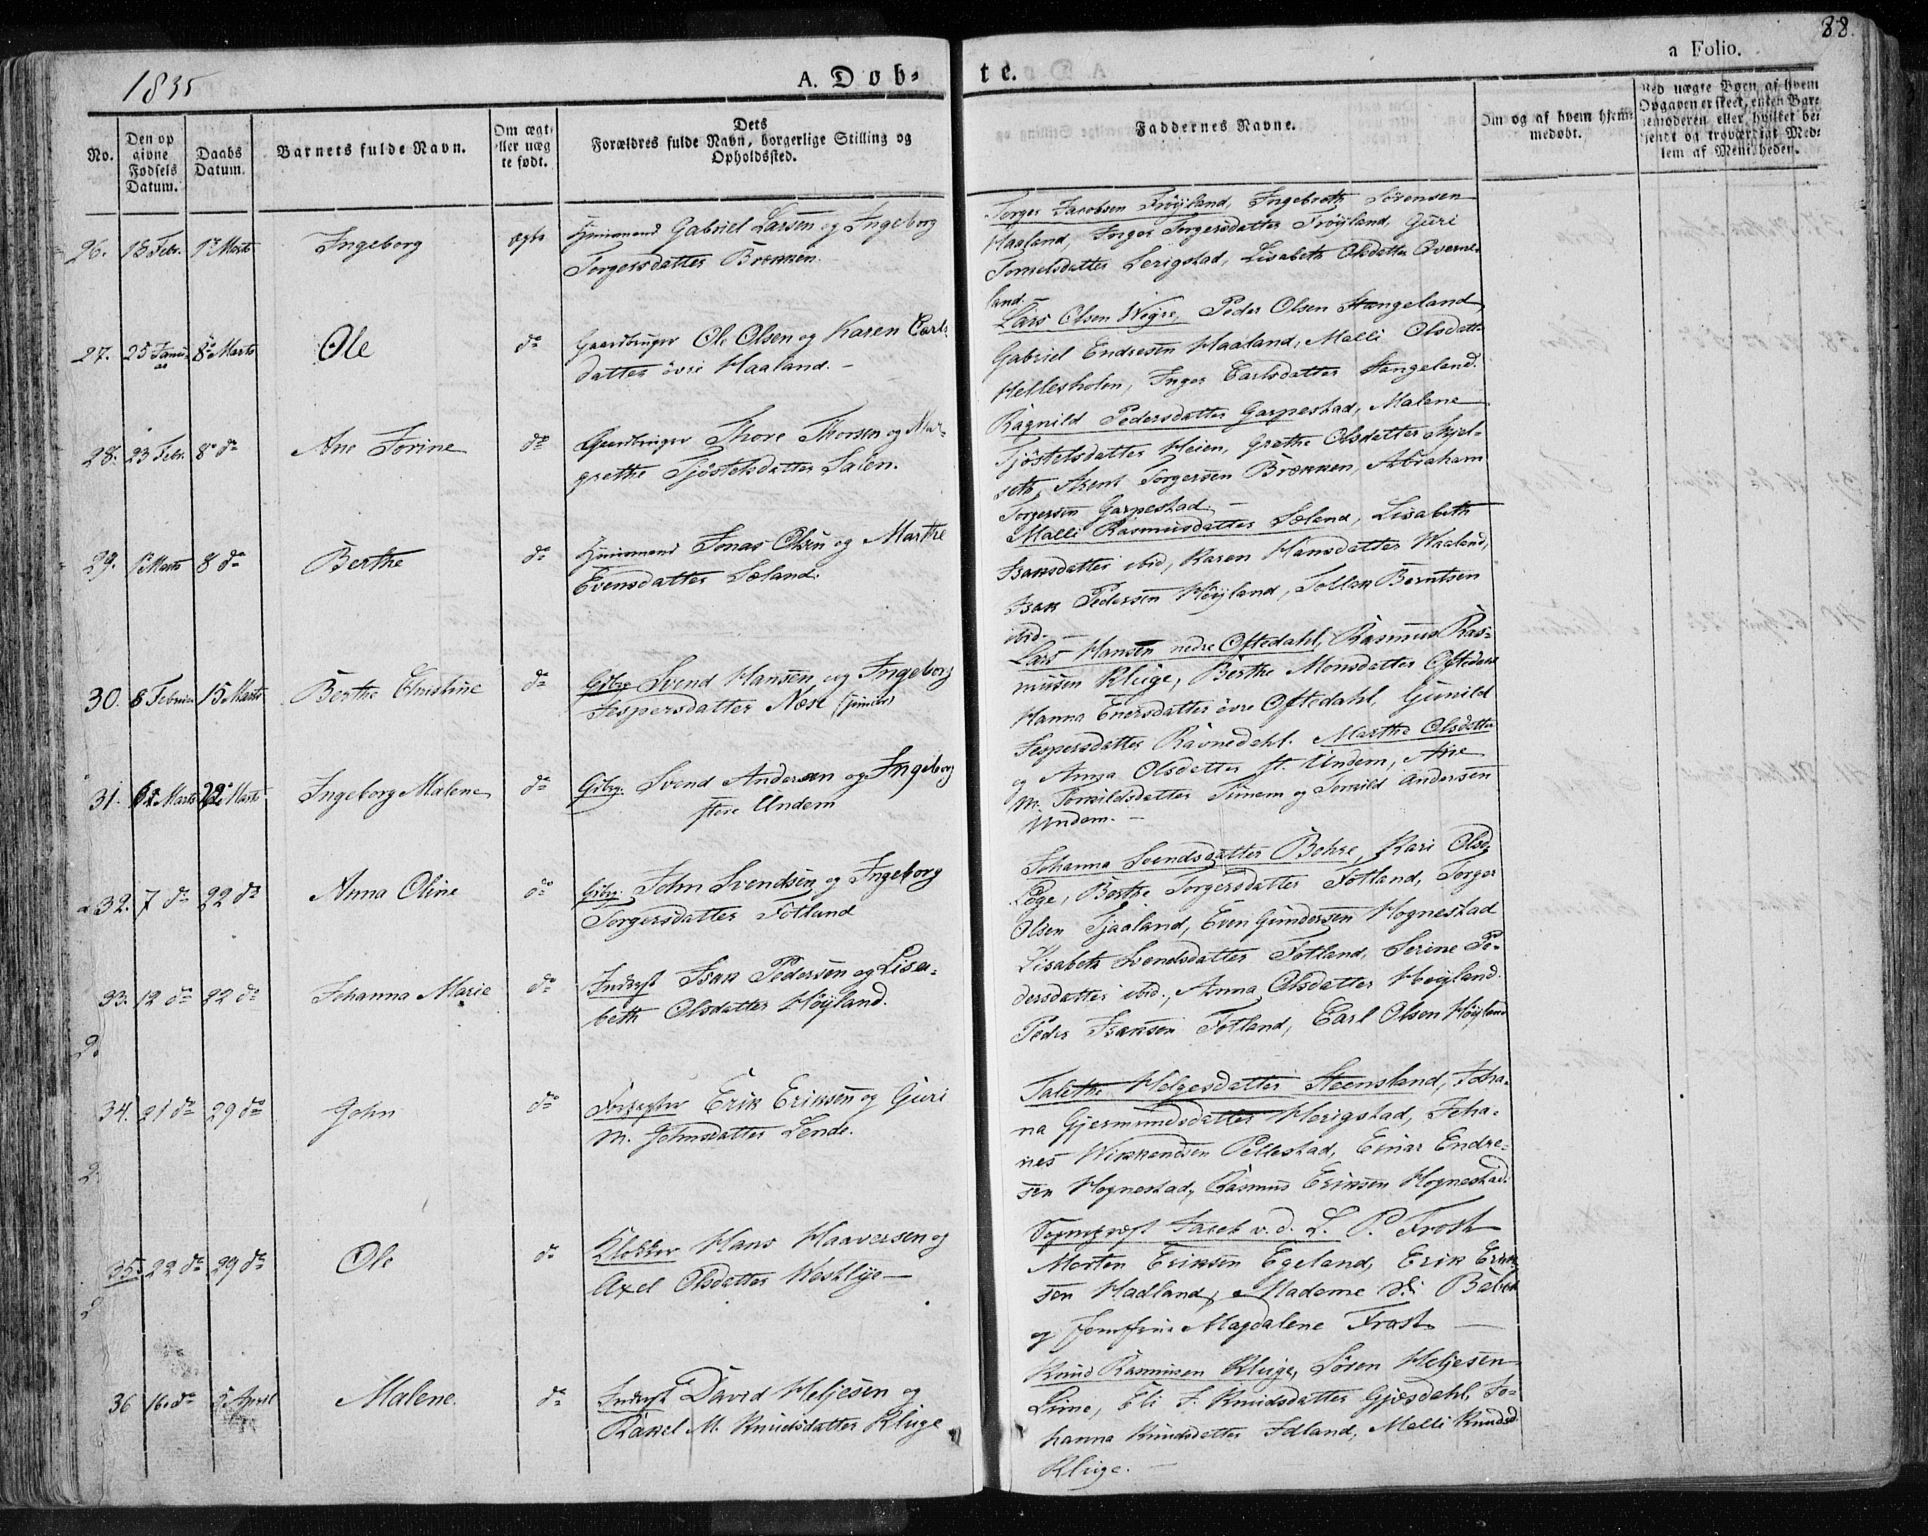 1835
A. Døb-
te.
a Folio.
88.
No.
Den op
givne
Fødsels
Datum.
Daabs
Datum.
Barnets fulde Navn.
Om ægt-
eller uæg
te født.
Dets
Forældres fulde Navn, borgerlige Stilling og
Opholdssted.
Faddernes Navne.
Om og af hvem hjem-
medøbt.
Ved uægte Børn, af hvem
Opgaven er skeet, enten Bar-
nemoderen eller hvilket bei
kjendt og troværdigt Med-
lem af Menigheden.
26. 18 Febr. 1ste Marts Ingeborg ægte Huusmand Gabriel Larsen og Ingeborg
Torgersdatter Brekken.
Torger Jacobsen Frøyland, Ingebreth Sørensen
Haaland, Inger Torgersdatter Frøyland, Guri
Tønnesdatter Serigstad, Lisabeth Olsdatter Qverne-
land.
27. 25 Janu- 8de Marts Ole do Gaardbruger Ole Olsen og Karen Carls-
datter övri Haaland.
Lars Olsen Wegre, Peder Olsen Stangeland
Gabriel Endresen Haaland, Malli Olsdatter
Hellesholen, Inger Carlsdatter Stangeland.
28. 23 Febr. 8 do Ane Torine do Gaardbruger Thore Thorsen og Mar-
grethe Tjöstelsdatter Salen.
Ragnild Pedersdatter Garpestad, Malene
Tjöstelsdatter Heien, Grethe Olsdatter Skjel-
seth, Arent Torgersen Brekken, Abraham
Torgersen Garpestad
29. 1 Marts 8 do Berthe do Huusmand Jonas Olsen og Marthe
Evensdatter Sæland.
Malli Rasmusdatter Sæland, Lisabeth
Isaksdatter ibid, Karen Hansdatter Haaland,
Isak Pedersen Höyland, Tollak Berntsen
ibid.
30. 8 Februar 15 Marts Berthe Christine do Grbr. Svend Hansen og Ingeborg
Jespersdatter Næse (Junior)
Lars Hansen nedre Oftedahl, Rasmus Ras-
mussen Kluge, Berthe Monsdatter Oftedahl
Hanna Enersdatter övre Oftedahl, Gunild
Jespersdatter Ravnedahl.
31. 1 Marts 22 Marts Ingeborg Malene do Grbrg. Svend Andersen og Ingeborg
store Undem
Marthe Olsdatter
og Anna Olsdatter st. Undem, Ane
M. Torkildsdatter Simem og Torkild Andersen
Undem.
32. 7 do 22 do Anna Oline do Grbrg. John Svendsen og Ingeborg
Torgersdatter Fotland
Johanna Svendsdatter Bohre, Kari Olsd.
Löge, Berthe Torgersdatter Fotland, Torger
Olsen Tjaaland, Even Gundersen Hognestad
33. 12 do 22 do Johanna Marie do Inderst Isak Pedersen og Lisa-
beth Olsdatter Höyland.
Lisabeth Svendsdatter Fotland, Serine Pe-
dersdatter ibid., Anna Olsdatter Höyland.
Peder Isaksen Fotland, Carl Olsen Höyland
34. 21 do 29 do John do Forpagter Erik Eriksen og Guri
M. Johnsdatter Lende.
Talethe Helgesdatter Steensland, Joha-
na Gjermundsdatter Herigstad, Joha-
nes Wikkendsen Pellestad, Einar Endre-
sen Hognestad, Rasmus Eriksen Hognestad.
35. 22 do 29 do Ole do Klokker Hans Haaversen og
Axel Olsdatter Westlye
Sognepræst Jacob v. d. L. P. Frost
Morten Eriksen Egeland, Erik Erik-
sen Hadland, Madame
og Jomfrue Magdalene Frost
36 16. do 5 April Malene. do Inderst David Heljesen og
Rakel M. Knudsdatter Kluge
Knud Rasmusen Kluge, Sören Heljesen
Lime, Eli J. Knudsdatter Gjesdahl, Jo-
hanna Knudsdatter Idland, Malli Knudsd.
Kluge.